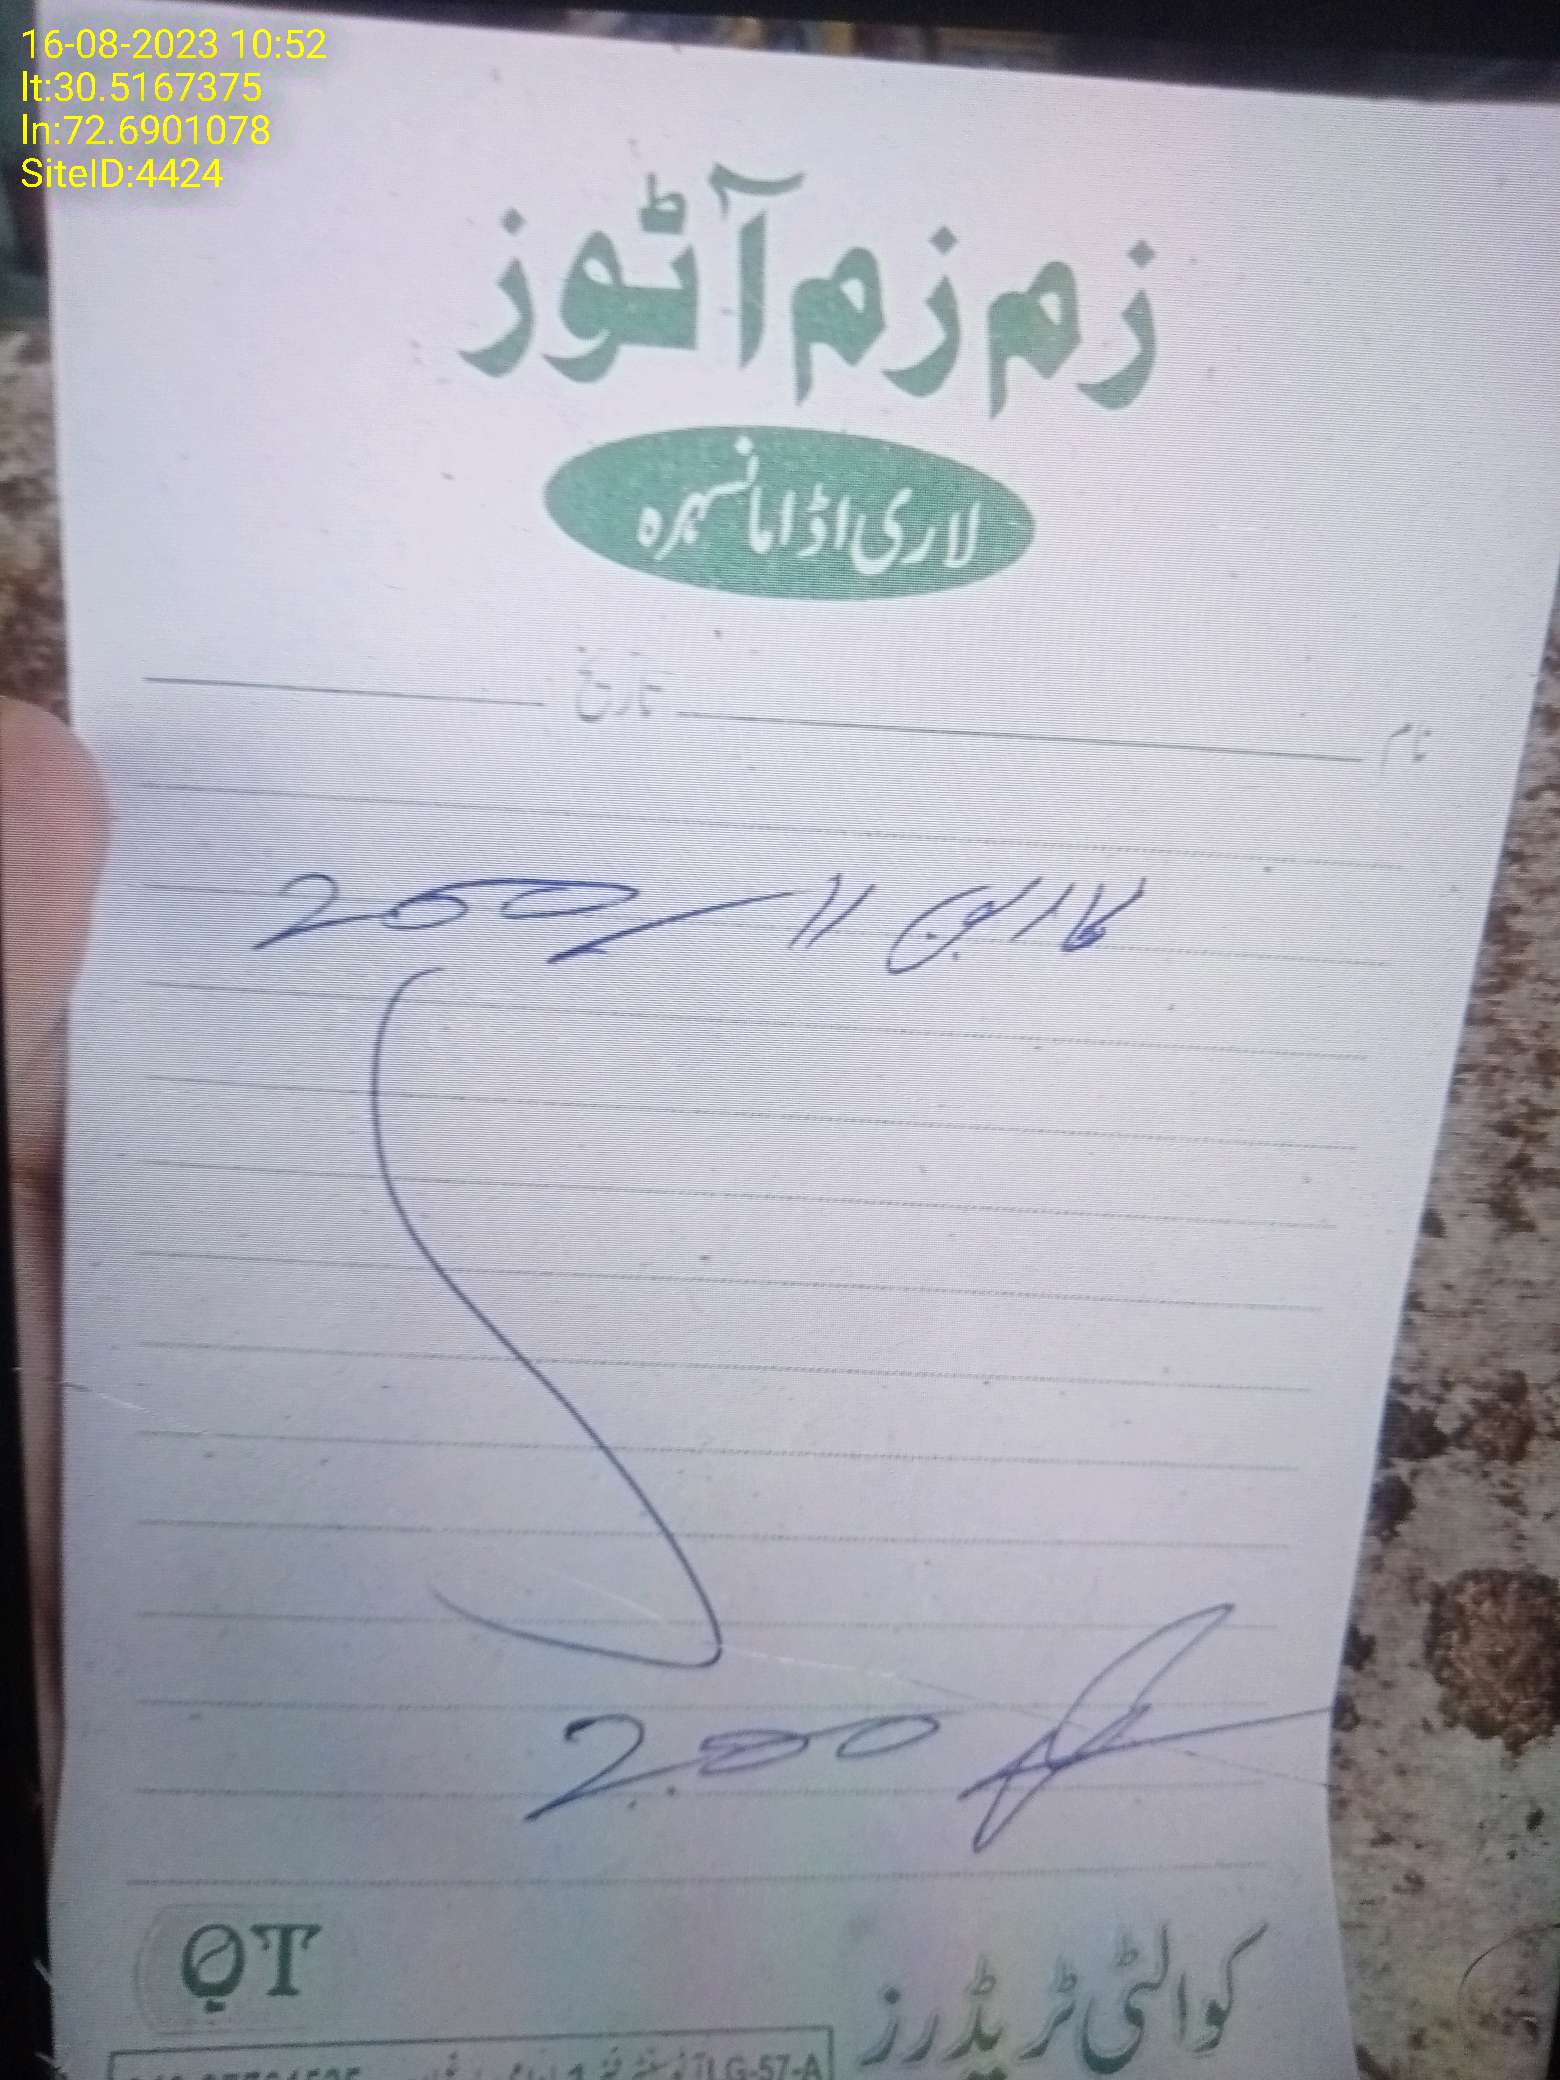 16-08-2023 10:52
lt:30.5167375
ln:72.6901078
SiteID:4424
زم زم آٹوز
لاری اڈا مانسہرہ
نام تاریخ
200
200
QT
کوالٹی ٹریڈرز
LG-57-A